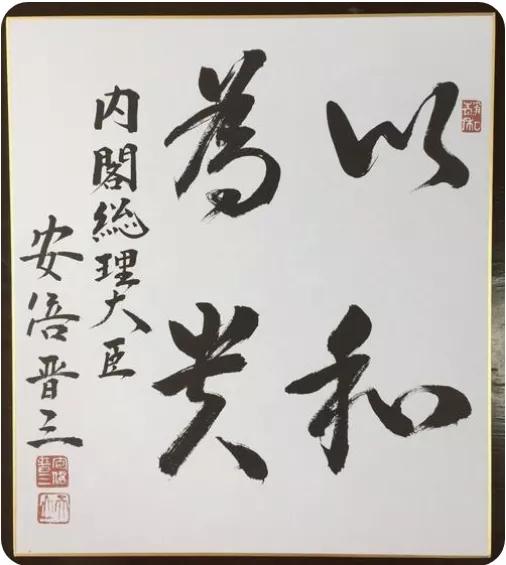 以和
為貴
内閣総理大臣
安倍晋三